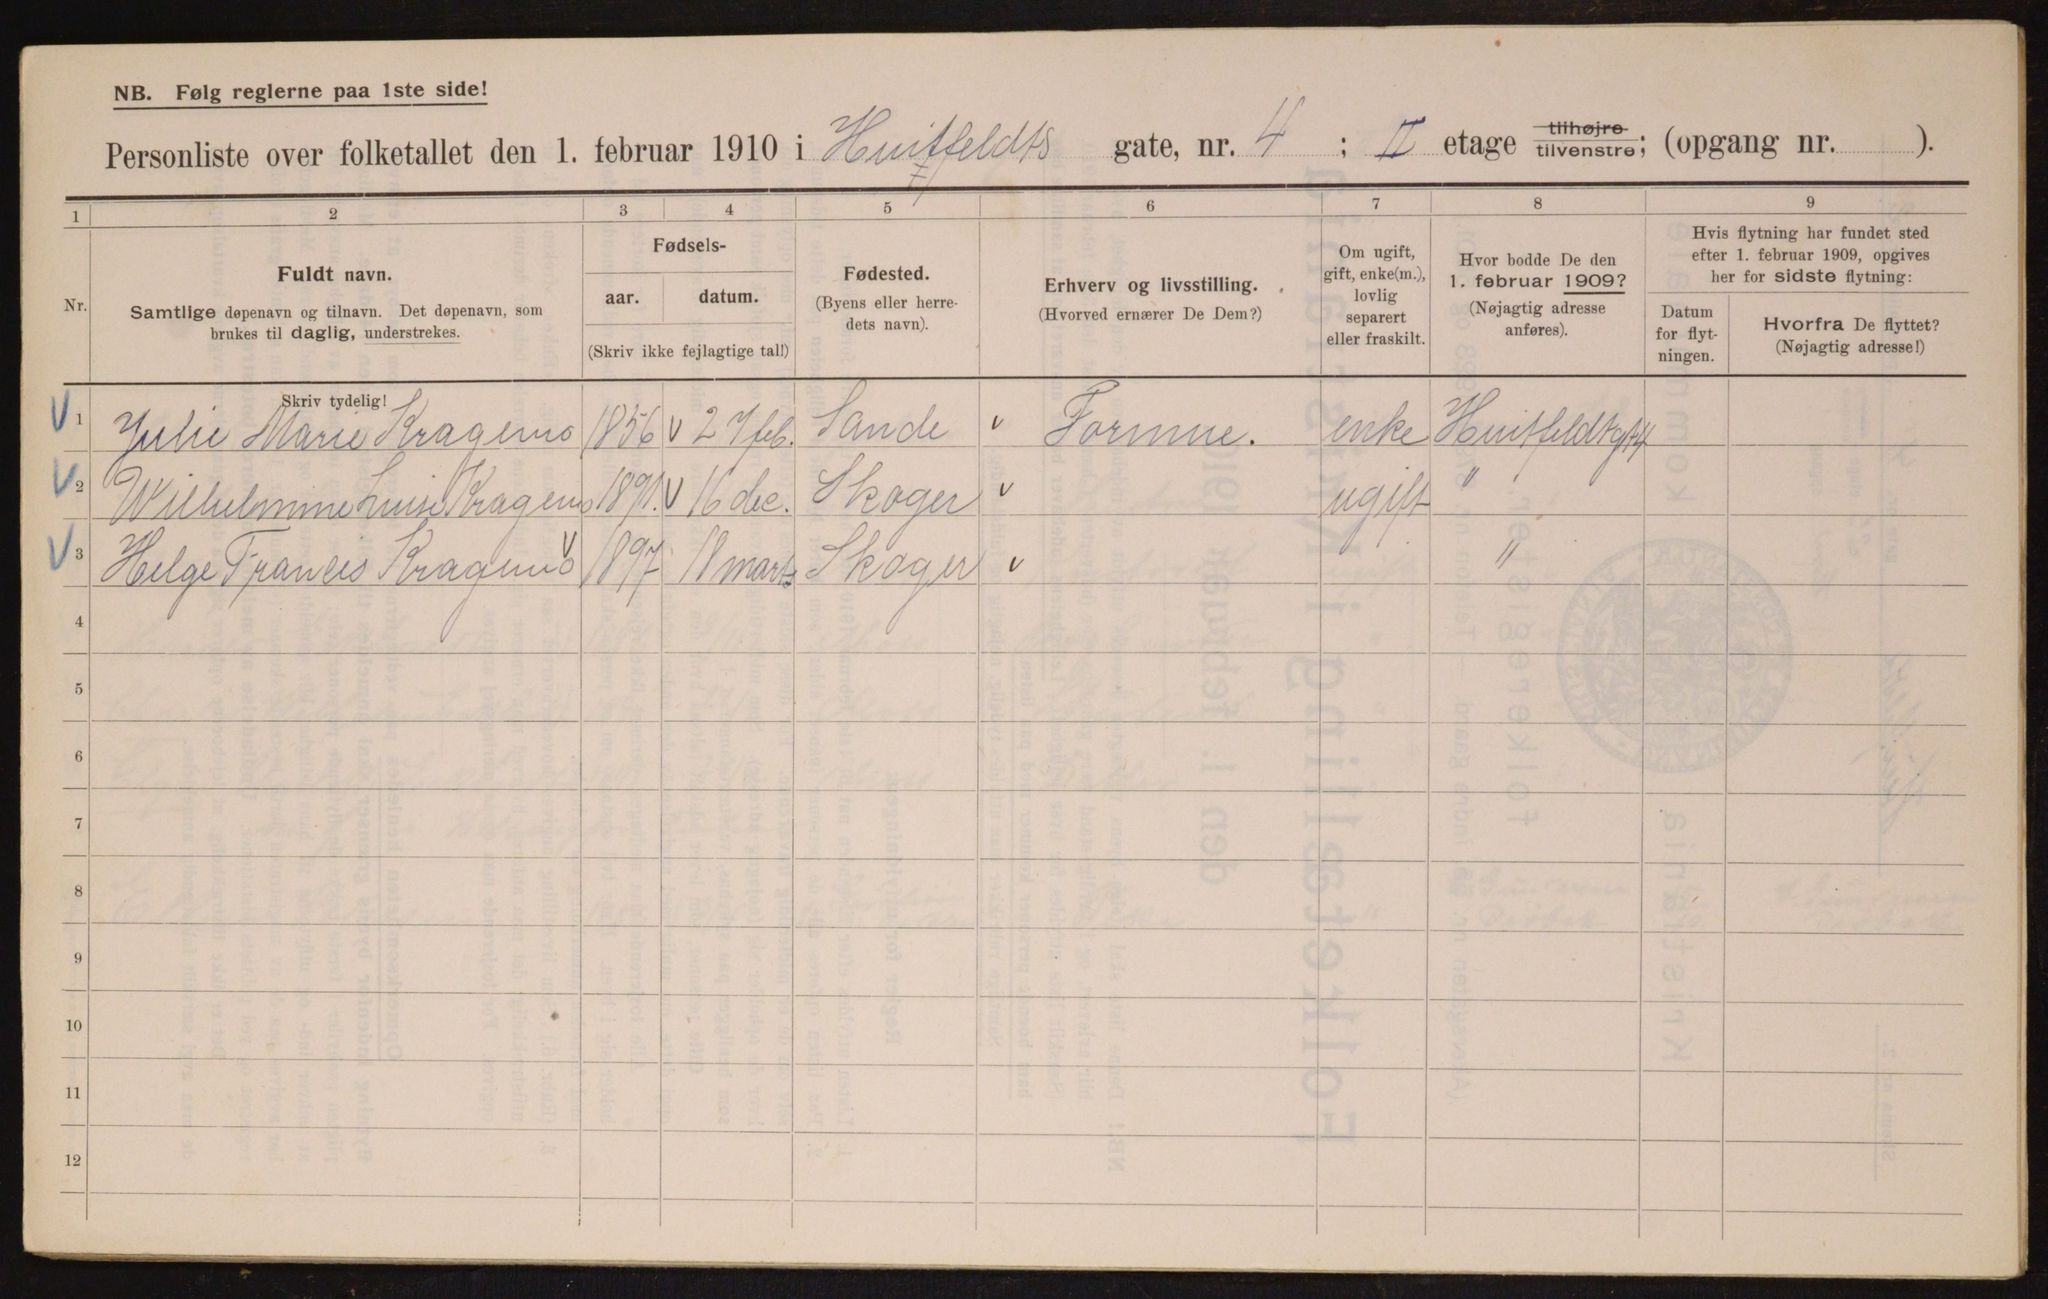 NB. Følg reglerne paa 1ste side!
Personliste over folketallet den 1. februar 1910 i Huitfeldts gate, nr. 4 ; II etage tilhøjre tilvenstre; (opgang nr. ).
1 2 3 4 5 6 7 8 9
Nr.
Fuldt navn.
Samtlige døpenavn og tilnavn. Det døpenavn, som
brukes til daglig, understrekes.
Fødsels-
aar. datum.
(Skriv ikke fejlagtige tal!)
Fødested.
(Byens eller herre-
dets navn).
Erhverv og livsstilling.
(Hvorved ernærer De Dem?)
Om ugift,
gift, enke(m.),
lovlig
separert
eller fraskilt.
Hvor bodde De den
1. februar 1909?
(Nøjagtig adresse
anføres).
Hvis flytning har fundet sted
efter 1. februar 1909, opgives
her for sidste flytning:
Datum
for flyt-
ningen.
Hvorfra De flyttet?
(Nøjagtig adresse!)
Skriv tydelig!
1 Julie Marie Kragemo 1856 27 feb. Sande Formue. enke Huitfeldtsgt 4
2 Wilhelmine Luise Kragemo 1891. 16 dec. Skoger ugift "
3 Helge Francis Kragemo 1897 18 marts Skoger "
4
5
6
7
8
9
10
11
12